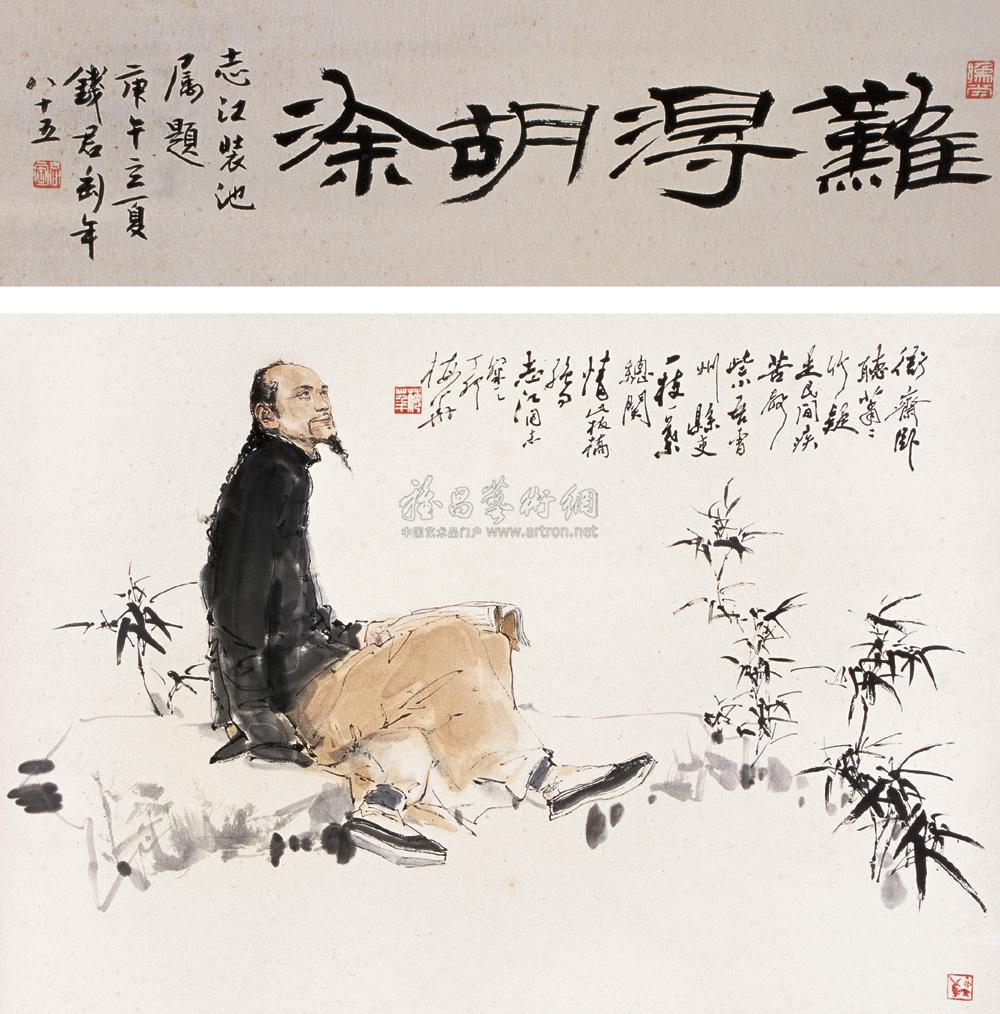 難淂胡涂
志江裝池
属題
庚午立夏
錢君匋年
八十五
衙齋卧
聽蕭〻
竹疑
是民間疾
苦聲
些小吾曹
州縣吏
一枝一葉
總関
情
志江同志
丁卯
梅華
雅昌藝術網
中国艺术品门户 www.artron.net